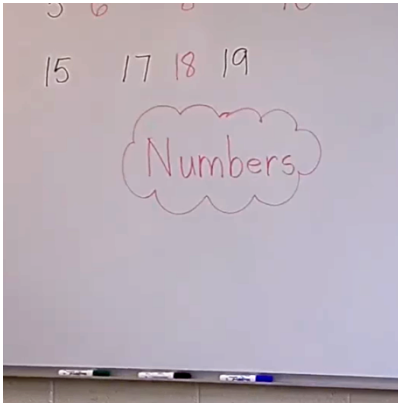 5 6
15 17 18 19
Numbers